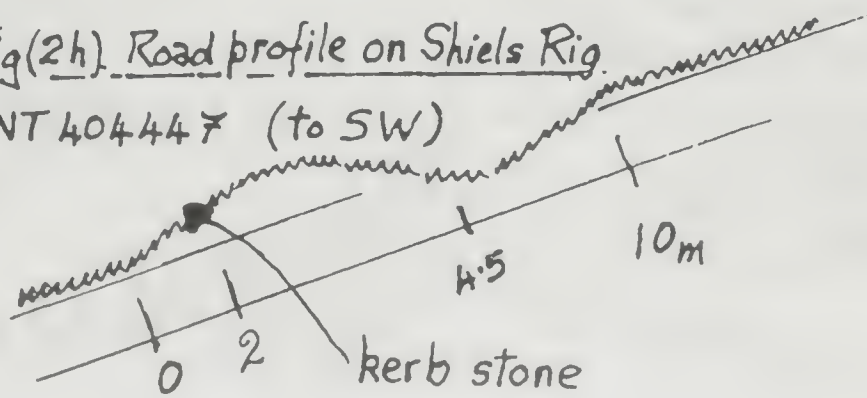 g(2h) Road profile on Shiels Rig
NT 404447 (to SW)
0
2
4.5
10m
kerb stone